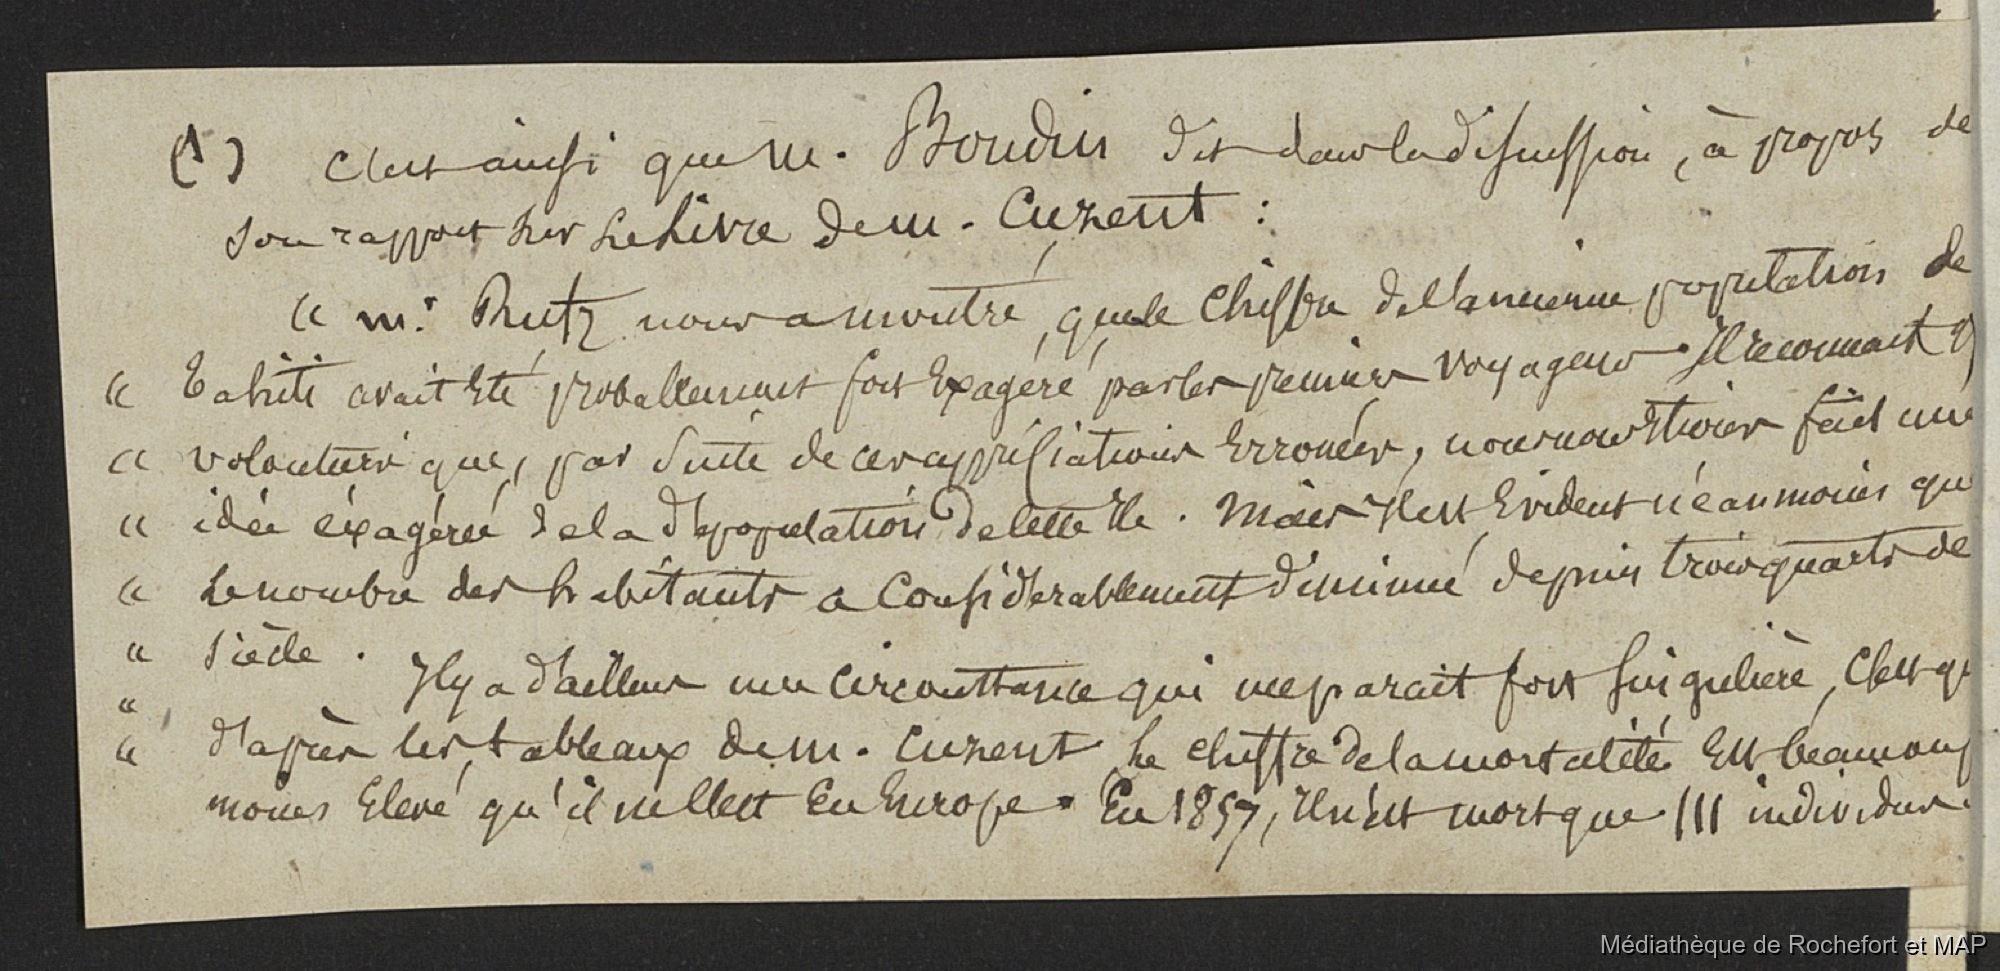 (1) C'est ainsi que M. Boudin dit dans la discussion, à propos de
son rapport sur le livre de M. Cuzent :
" Mr. Rutz nous a montré, que le chiffre de l'ancienne population de
" Tahiti avait été probablement fort exagéré par les premiers voyageurs. Il reconnait
" volontiers que, par suite de ces appréciations erronées, nous nous étions fait une
" idée éxagérée de la dépopulation de cette île. Mais il est évident néanmoins que
" le nombre des habitants a considérablement diminué depuis trois quarts de
" siècle.
" Il y a d'ailleurs une circonstance qui me parait fort singulière, c'est que
" d'après les tableaux de M. Cuzent le chiffre de la mortalité est beaucoup
moins élevé qu'il ne l'est en Europe. En 1857, il n'est mort que 111 individus.
Médiathèque de Rochefort et MAP